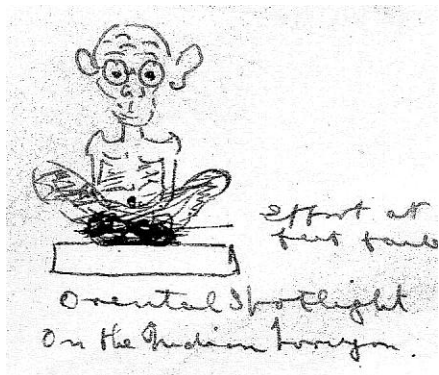 Effort at
feet
Oriental Spotlight
On the Indian horizon.